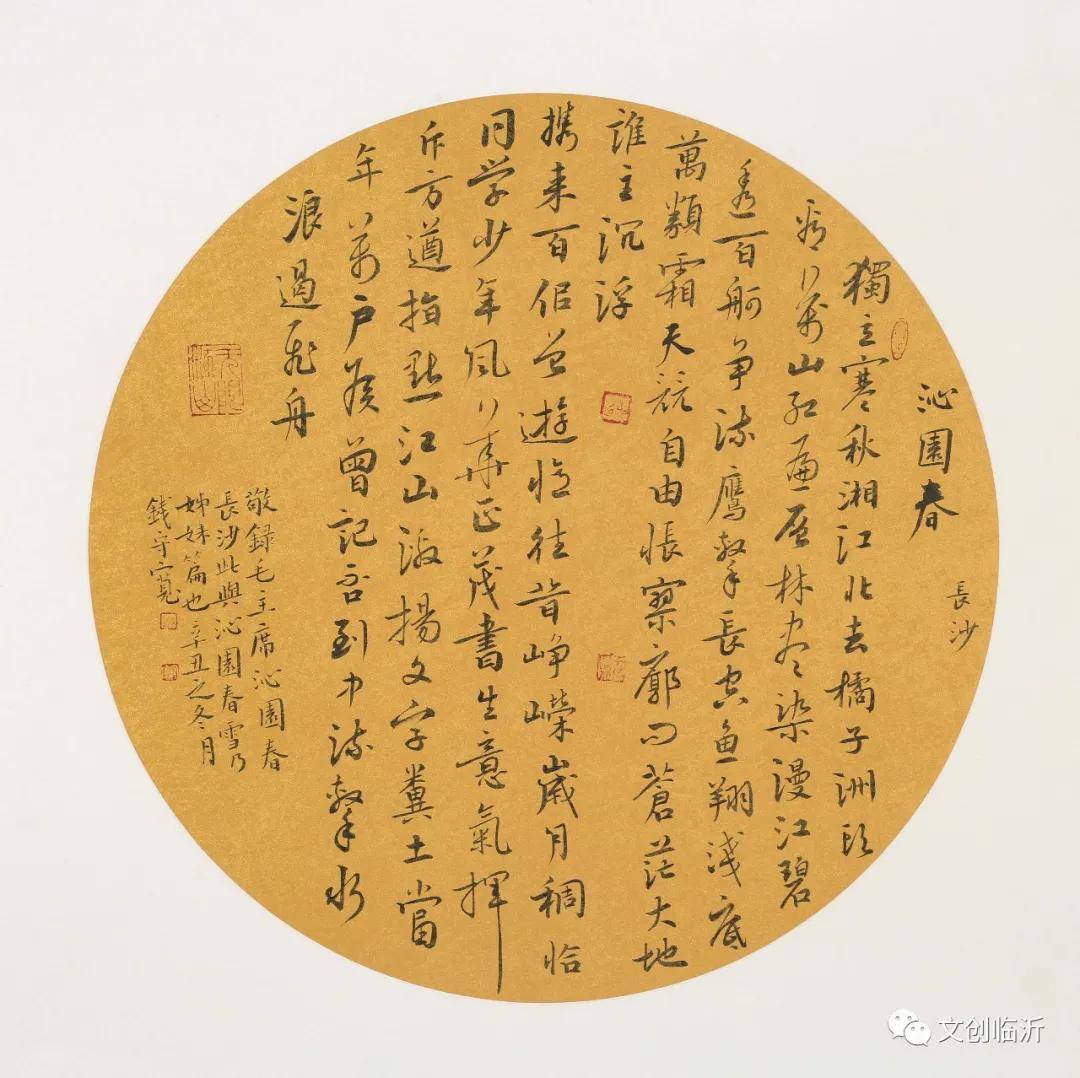 沁園春
長沙
獨立寒秋湘江北去橘子洲頭
看萬山紅遍層林盡染漫江碧
透百舸争流鷹擊長空魚翔淺底
萬類霜天競自由悵寥廓問蒼茫大地
誰主沉浮
携来百侣曾遊憶往昔崢嶸歲月稠恰
同学少年風華正茂書生意氣揮
斥方遒指點江山激揚文字糞土當
年萬户侯曾記否到中流擊水
浪遏飛舟
敬録毛主席沁園春
長沙此與沁園春雪乃
姊妹篇也辛丑之冬月
錢守寬
文创临沂